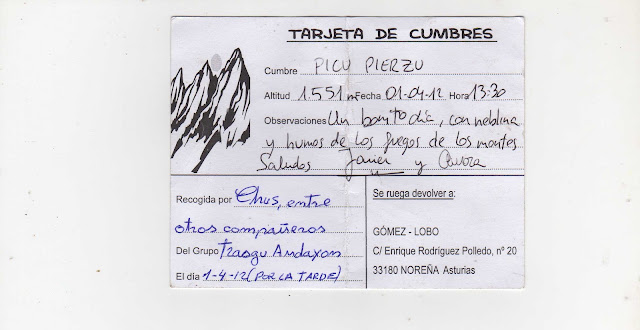 TARJETA DE CUMBRES
Cumbre PICU PIERZU
Altitud 1.551 m Fecha 01-04-12 Hora 13:30
Observaciones Un bonito día, con neblina
y humos de los fuegos de los montes
Saludos Javier y
Recogida por Chus, entre
otros compañeros
Del Grupo Trasgu Andaxon
El día 1-4-12 (POR LA TARDE)
Se ruega devolver a:
GÓMEZ - LOBO
C/ Enrique Rodríguez Polledo, nº 20
33180 NOREÑA Asturias